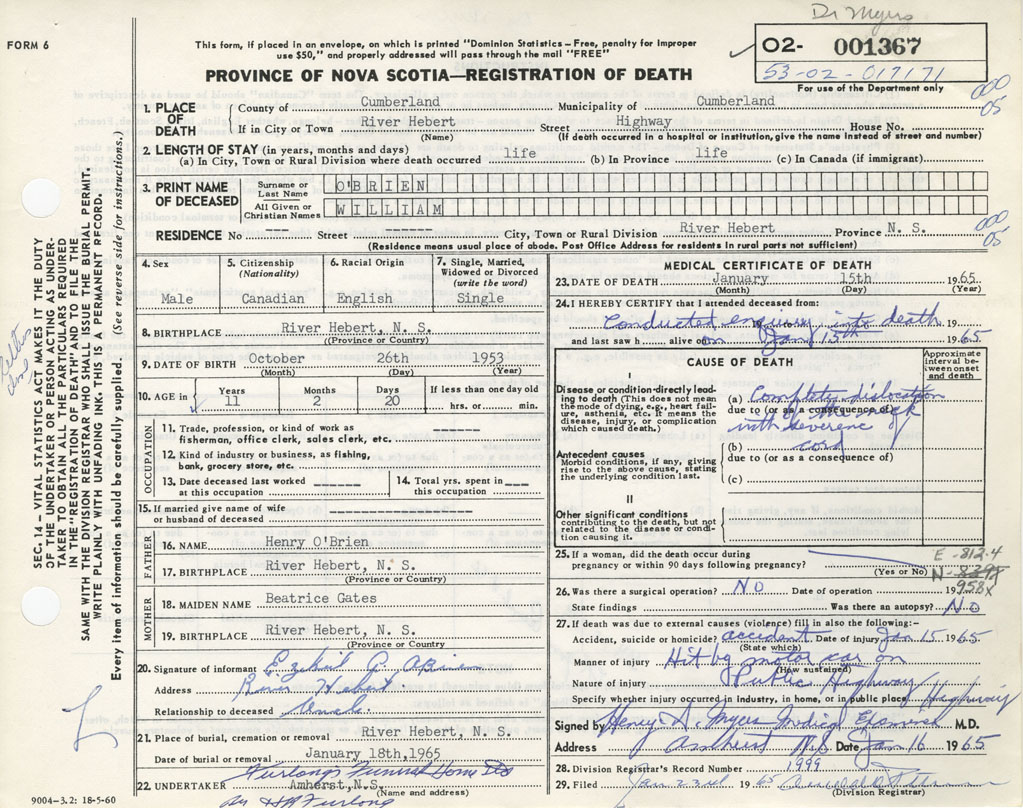 Dr Myers
FORM 6
This form, if placed in an envelope, on which is printed "Dominion Statistics—Free, penalty for improper
use $50," and properly addressed will pass through the mail "FREE"
O2- 001367
53-02-017171
For use of the Department only
PROVINCE OF NOVA SCOTIA—REGISTRATION OF DEATH
000
05
1. PLACE OF DEATH { County of Cumberland Municipality of Cumberland
If in City or Town River Hebert Street Highway House No.
(Name) (If death occurred in a hospital or institution, give the name instead of street and number)
2. LENGTH OF STAY (in years, months and days)
(a) In City, Town or Rural Division where death occurred life (b) In Province life (c) In Canada (if immigrant)
3. PRINT NAME OF DECEASED
Surname or Last Name O'BRIEN
All Given or Christian Names WILLIAM
000
05
RESIDENCE No --- Street ------ City, Town or Rural Division River Hebert Province N. S.
(Residence means usual place of abode. Post Office Address for residents in rural parts not sufficient)
SEC. 14 – VITAL STATISTICS ACT MAKES IT THE DUTY
OF THE UNDERTAKER OR PERSON ACTING AS UNDER-
TAKER TO OBTAIN ALL THE PARTICULARS REQUIRED
IN THE "REGISTRATION OF DEATH" AND TO FILE THE
SAME WITH THE DIVISION REGISTRAR WHO SHALL ISSUE THE BURIAL PERMIT.
WRITE PLAINLY WITH UNFADING INK. THIS IS A PERMANENT RECORD.
Every item of information should be carefully supplied. (See reverse side for instructions.)
4. Sex Male
5. Citizenship (Nationality) Canadian
6. Racial Origin English
7. Single, Married, Widowed or Divorced (write the word) Single
8. BIRTHPLACE River Hebert, N. S.
(Province or Country)
9. DATE OF BIRTH October 26th 1953
(Month) (Day) (Year)
10. AGE in Years 11 Months 2 Days 20 If less than one day old hrs. or min.
OCCUPATION
11. Trade, profession, or kind of work as
fisherman, office clerk, sales clerk, etc. -------
12. Kind of industry or business, as fishing,
bank, grocery store, etc.
13. Date deceased last worked at this occupation -------
14. Total yrs. spent in this occupation ----
15. If married give name of wife
or husband of deceased -------
FATHER
16. NAME Henry O'Brien
17. BIRTHPLACE River Hebert, N. S.
(Province or Country)
MOTHER
18. MAIDEN NAME Beatrice Gates
19. BIRTHPLACE River Hebert, N. S.
(Province or Country)
20. Signature of informant
Address River Hebert
Relationship to deceased Uncle
21. Place of burial, cremation or removal River Hebert, N. S.
Date of burial or removal January 18th, 1965
Furlong's Funeral Home
22. UNDERTAKER Amherst, N.S.
(Name and address)
9004-3.2: 18-5-60
MEDICAL CERTIFICATE OF DEATH
23. DATE OF DEATH January 15th 1965
(Month) (Day) (Year)
24. I HEREBY CERTIFY that I attended deceased from:
Conducted enquiry into death 19
and last saw h alive on Jan 15th 1965
CAUSE OF DEATH
Approximate interval between onset and death
I
Disease or condition directly lead-
ing to death (This does not mean
the mode of dying, e.g., heart fail-
ure, asthenia, etc. It means the
disease, injury, or complication
which caused death.)
(a) Complete dislocation
due to (or as a consequence of)
of the neck
with severence of
(b) cord
due to (or as a consequence of)
(c)
Antecedent causes
Morbid conditions, if any, giving
rise to the above cause, stating
the underlying condition last.
II
Other significant conditions
contributing to the death, but not
related to the disease or condi-
tion causing it.
25. If a woman, did the death occur during
pregnancy or within 90 days following pregnancy?
(Yes or No)
E-812.4
N-
958X
26. Was there a surgical operation? NO Date of operation 19
State findings Was there an autopsy? No
27. If death was due to external causes (violence) fill in also the following:—
Accident, suicide or homicide? accident Date of injury Jan 15 1965
(State which)
Manner of injury Hit by motor car on
(How sustained)
Nature of injury Public Highway
Specify whether injury occurred in industry, in home, or in public place Highway
Signed by Henry H. Myers Medical Examiner M.D.
Address Amherst N.S. Date Jan 16 1965
28. Division Registrar's Record Number 1999
29. Filed Jan 22nd 1965
(Division Registrar)